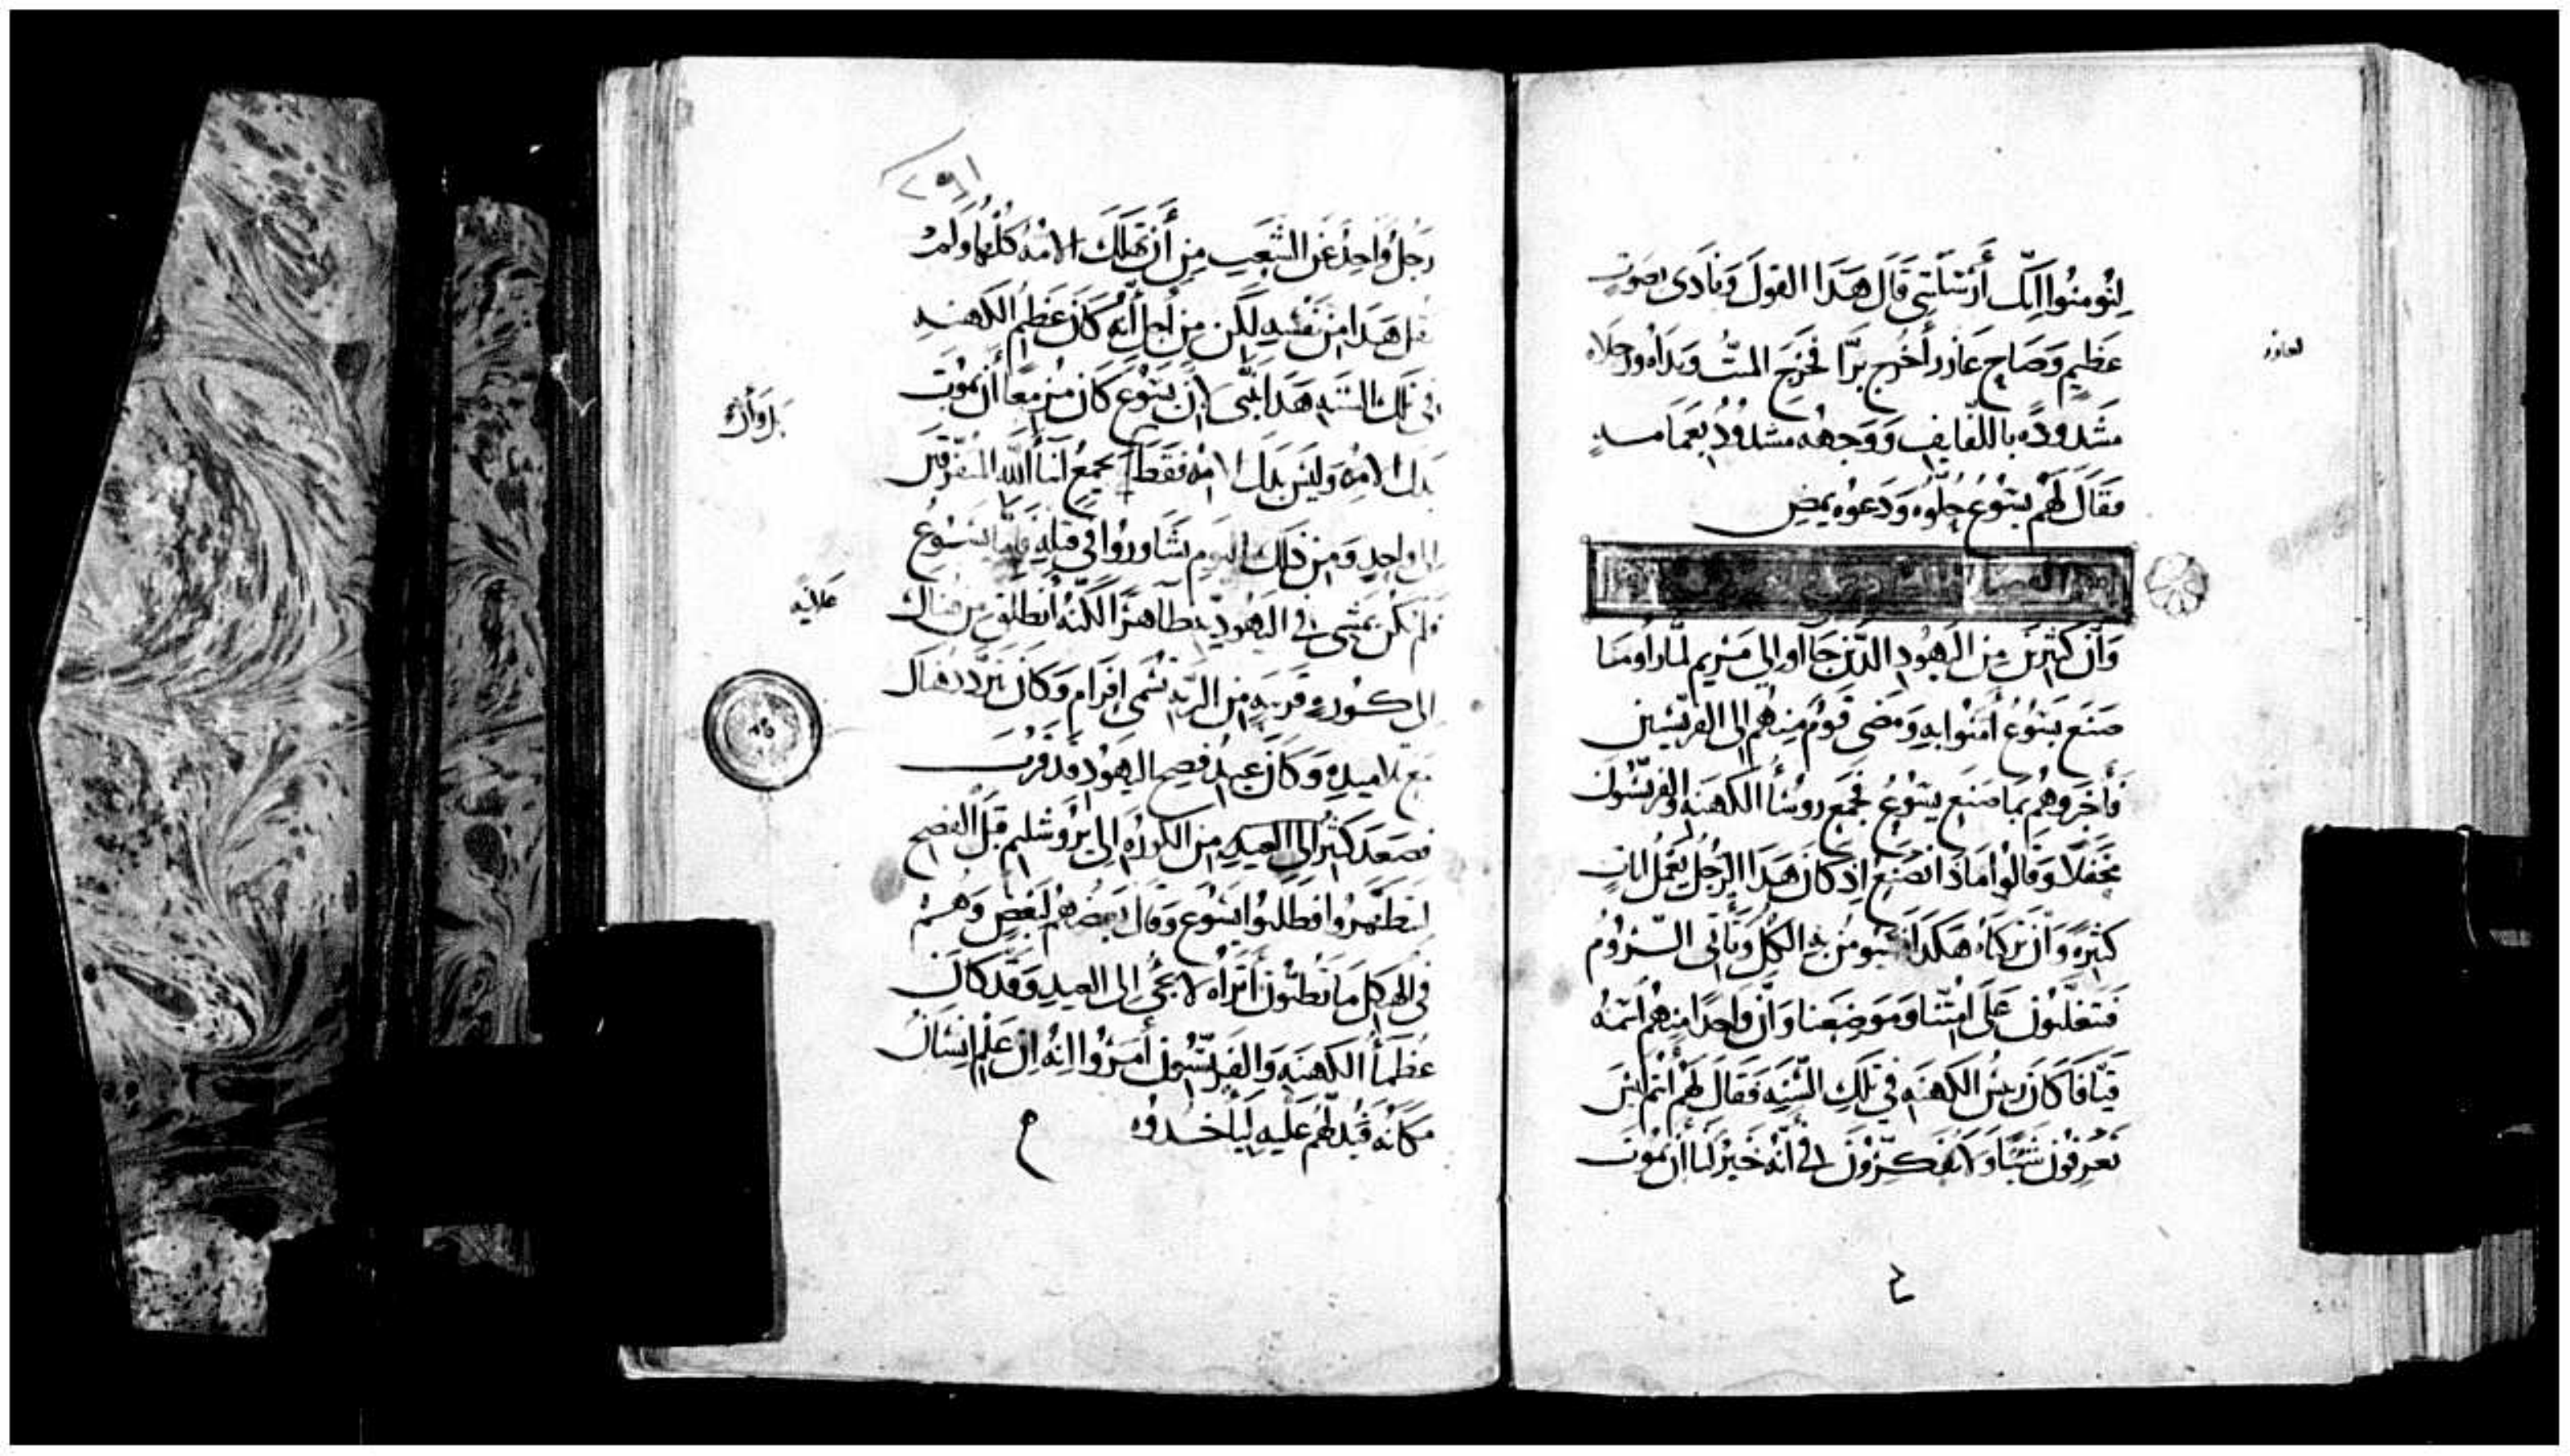 لِتُومنُوا انّك أَرْسَلتَنِي قَالَ هَذَا القولَ وَنَادَى بصَوتٍ
عَظِيمٍ وَصَاحِ عَازر أُخرج بَرَّا فَخَرَجَ الميّت وَيَدَاهُ ورجلاه
لعازر
مَشدودَه باللفايف وَوَجهه مشدُودٌ بعمامه
فقَالَ لَهُم يَسُوعُ حِلُّوه وَدَعُوه يمضِ
وَأَن كثيرين مِن اليَهُودِ الذين جَااوا الي مَرْيم لمّا راوا مَا
صَنَعَ يَسُوعُ امَنُوا بِهِ وَمَضي قَومٌ مِنهم إلى الفريسيين
فَأَخبَروهُم بِمَا صَنَع يَسُوعُ فجمع روسَأ الكهنه والفريسُون
محفَلًا وَقالوا مَاذا نَصْنَع إذ كانَ هَذَا الرجُل يَعمَلُ اياتٍ
كثيره وَان تركنَاه هكَذَا فسَيومن به الكل وَتَأتى الرُّومُ
فَيتغلّبُون عَلى امّتنا وَموضِعنا وَانّ واحِدًا مِنهُم اسمُه
قَيَافَا كانَ ريسُ الكهَنه في تلك السَّنه فَقَالَ لهم أَنتم لَيس
تَعْرفونَ شَيًا وَلَا تفَكّرونَ في أَنّه خَيرٌ لنا أَن يَمُوت
٢٥٦
رَجلٌ وَاحِدٌ عَن الشعبِ مِن أَن تهلِكَ الامّهُ كلّها وَلم
يقل هَذَا من نفسِه لكن من أجل أَنّه كانَ عَظيم الكهنه
في تلك السَّنه هَذَا تنبّى انّ يَسُوع كانَ مزمعًا أَن يَمُوتَ
بَدل الامّه وَليسَ بدَل الامّه فقَط يَجمعُ ابنَأ اللّه المتفرقين
بَل وَأَن
الى واحِدٍ وَمِن ذلك اليوم تشَاوروا في قتلِه فامّا يَسُوع
فلم يَكُن يَمشي في اليَهُوديّه ظاهرًا لكنّهُ انطلق من هُناك
عَلانيه
الى كوره قريبه من البَرّيه تُسمى افرام وَكانَ يتردّد هناك
مَع تلاميذه وَكانَ عيد فصح اليهود قَد قَرُبَ
فصَعدَ كثيرٌ الى العيد من الكوره إلى يروشليم قبل الفصح
ليتطَهّروا فطلَبوا يَسُوع وَقال بعضهُم لبَعضٍ وَهُم
في الهيكل مَا تظنّون أَتراه لا يجي الى العيد وَقَد كانَ
عُظمَأُ الكهنَه وَالفريسيُون أَمَرُوا انّه ان عَلم انسَانٌ
مَكانه فَيدلّهم عَليه ليأخذوه